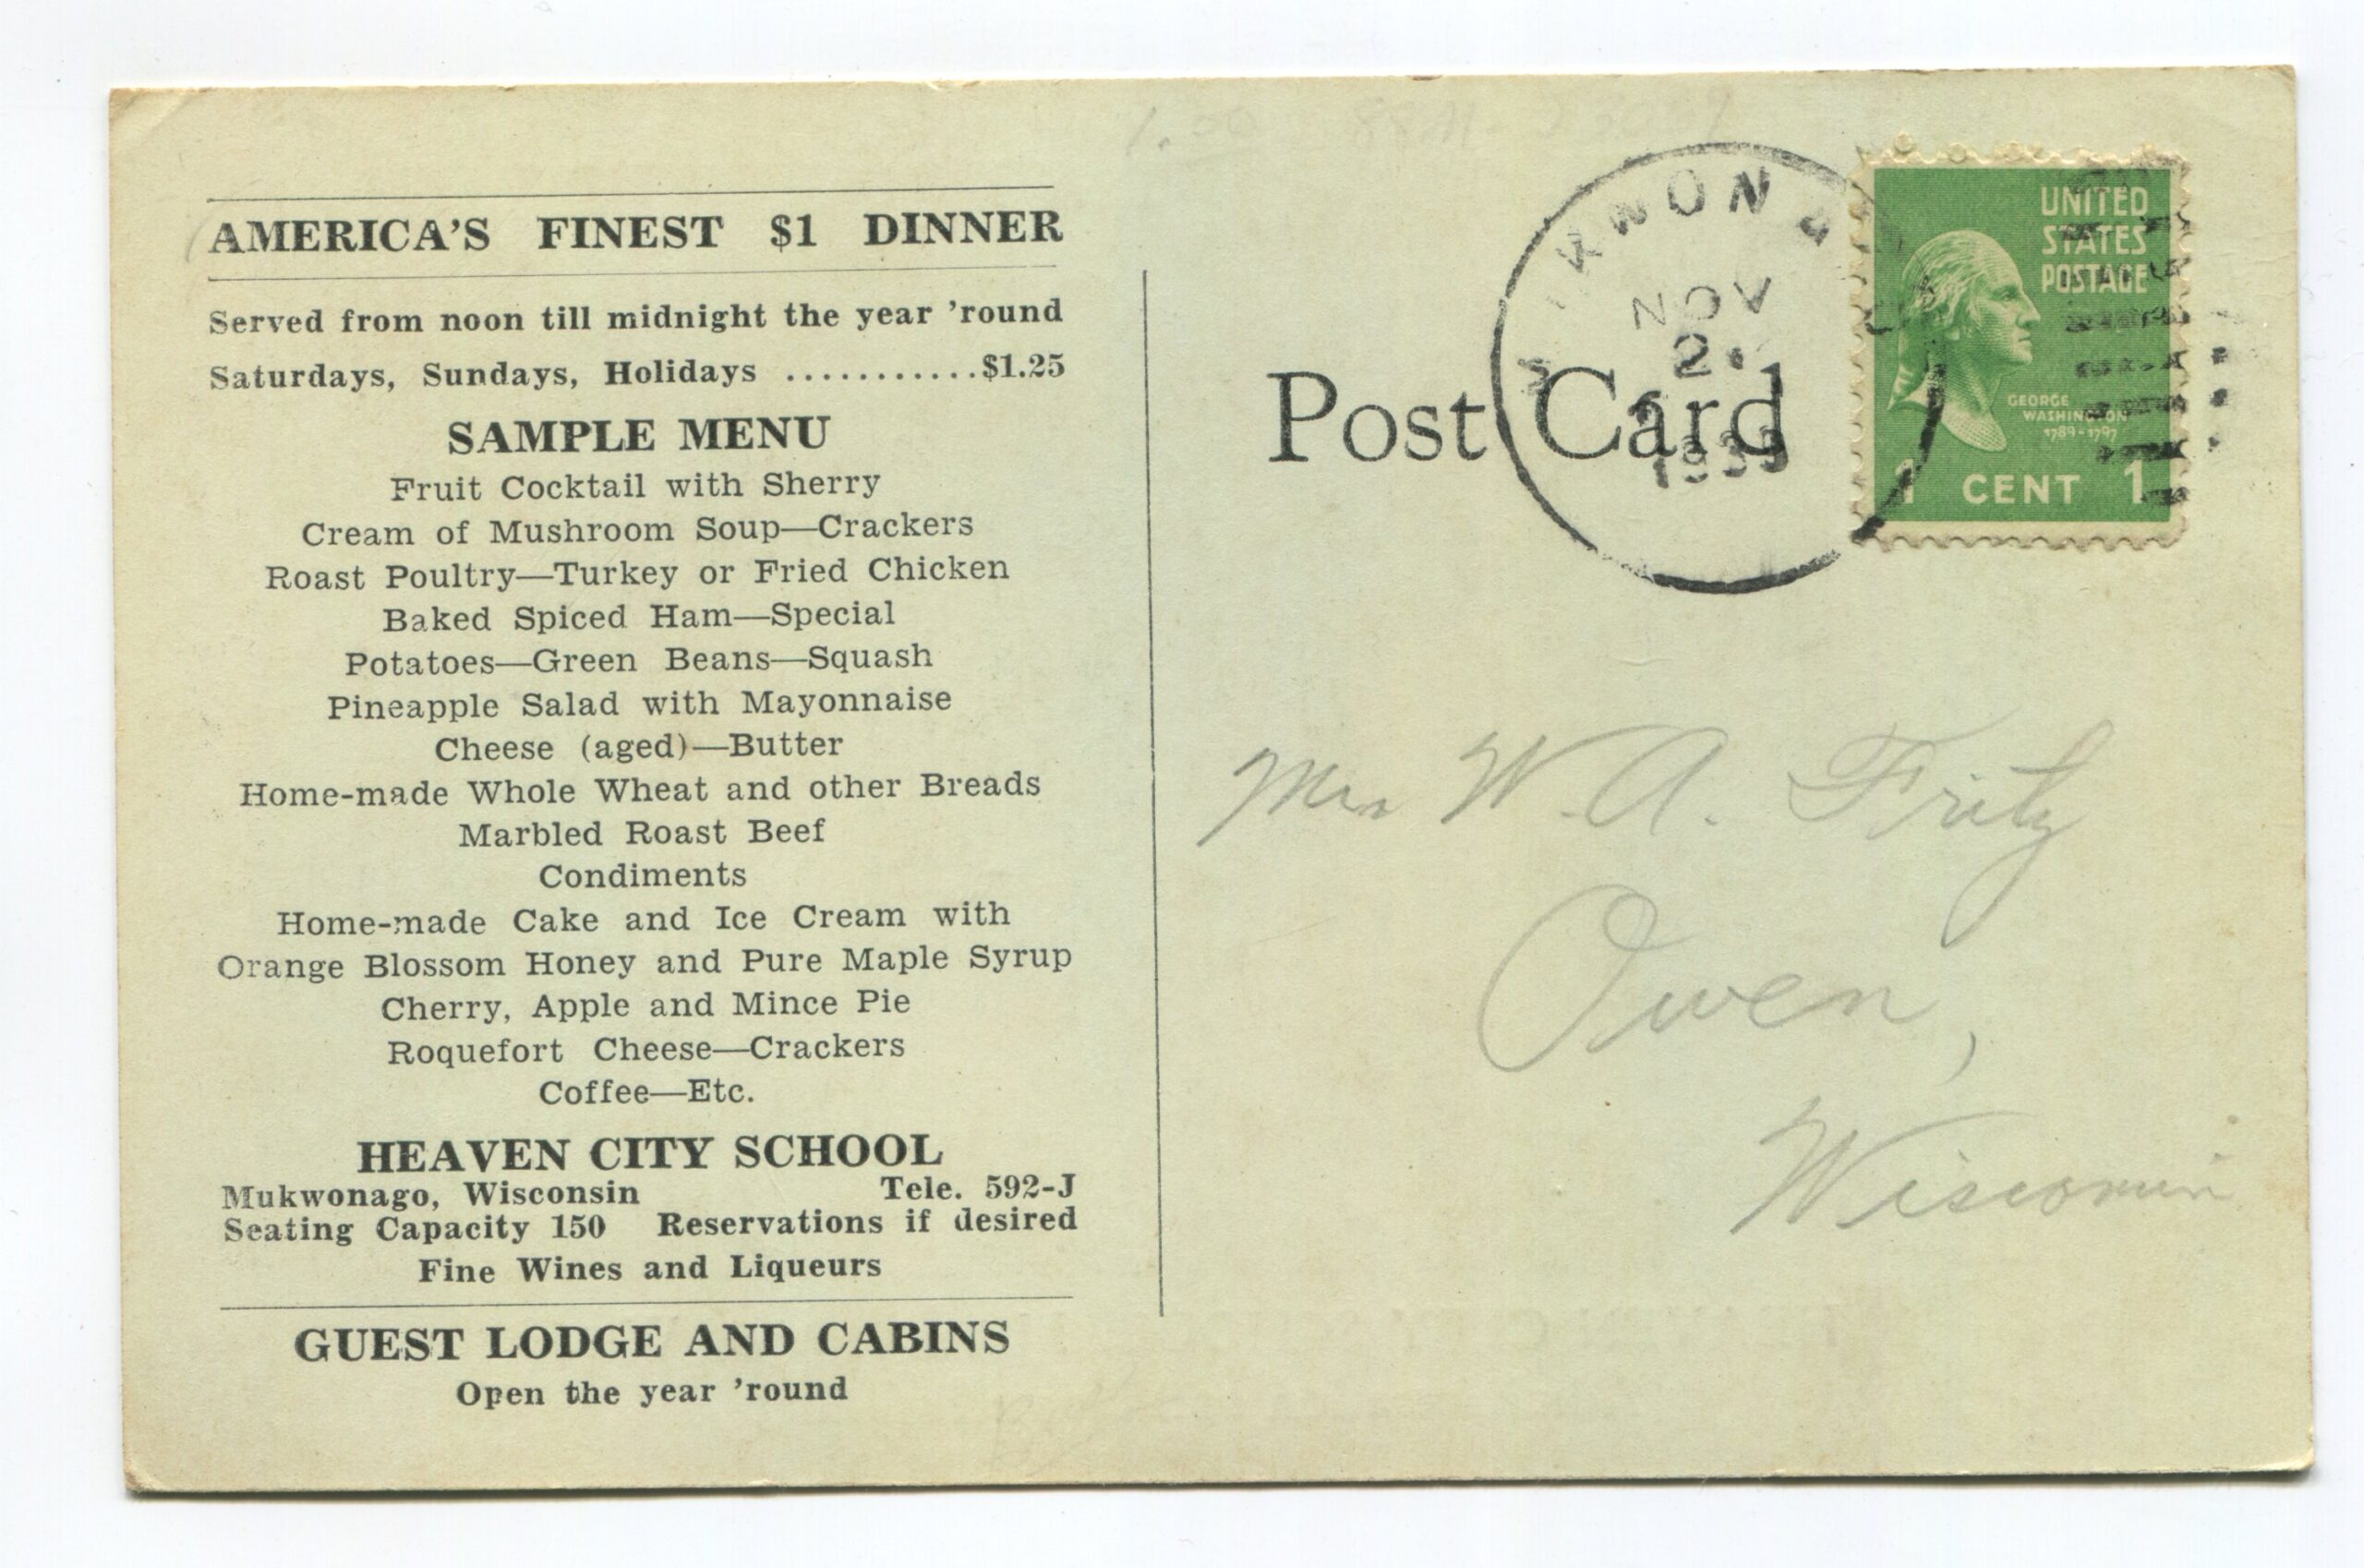 AMERICA'S FINEST $1 DINNER
Served from noon till midnight the year 'round
Saturdays, Sundays, Holidays ...........$1.25
SAMPLE MENU
Fruit Cocktail with Sherry
Cream of Mushroom Soup—Crackers
Roast Poultry—Turkey or Fried Chicken
Baked Spiced Ham—Special
Potatoes—Green Beans—Squash
Pineapple Salad with Mayonnaise
Cheese (aged)—Butter
Home-made Whole Wheat and other Breads
Marbled Roast Beef
Condiments
Home-made Cake and Ice Cream with
Orange Blossom Honey and Pure Maple Syrup
Cherry, Apple and Mince Pie
Roquefort Cheese—Crackers
Coffee—Etc.
HEAVEN CITY SCHOOL
Mukwonago, Wisconsin Tele. 592-J
Seating Capacity 150 Reservations if desired
Fine Wines and Liqueurs
GUEST LODGE AND CABINS
Open the year 'round
1.00
Post Card
NOV
1939
UNITED
STATES
POSTAGE
GEORGE
WASHINGTON
1789-1797
1 CENT 1
Mrs W. A. Fritz
Owen,
Wisconsin